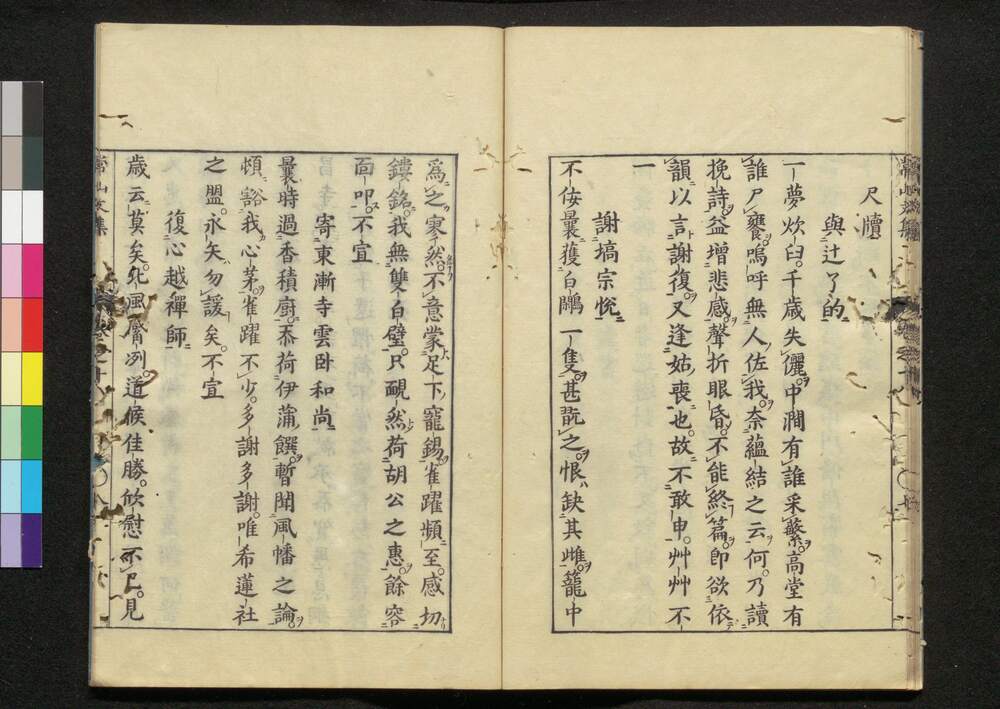 尺牘
與辻了的
一夢炊臼千歳失儷中澗有誰采蘩高堂有
誰尸饔嗚呼無人佐我奈蘊結之云何乃讀
挽詩益增悲感聲折眼昏不能終篇即欲依
韻以言謝復又逢姑喪也故不敢申艸艸不
一
謝塙宗悅
不佞曩獲白鷴一隻甚翫之恨缺其雌籠中
爲之寥然不意蒙足下寵錫雀躍頻至感切
鏤銘我無雙白璧只靦然荷胡公之惠餘容
面叩不宣
寄東漸寺雲卧和尚
曩時過香積廚忝荷伊蒲饌暫聞風幡之論
頓豁我心茅雀躍不少多謝多謝唯希蓮社
之盟永矢勿諼矣不宣
復心越禪師
歳云莫矣北風膚冽道候佳勝欣慰不已見
常山文集